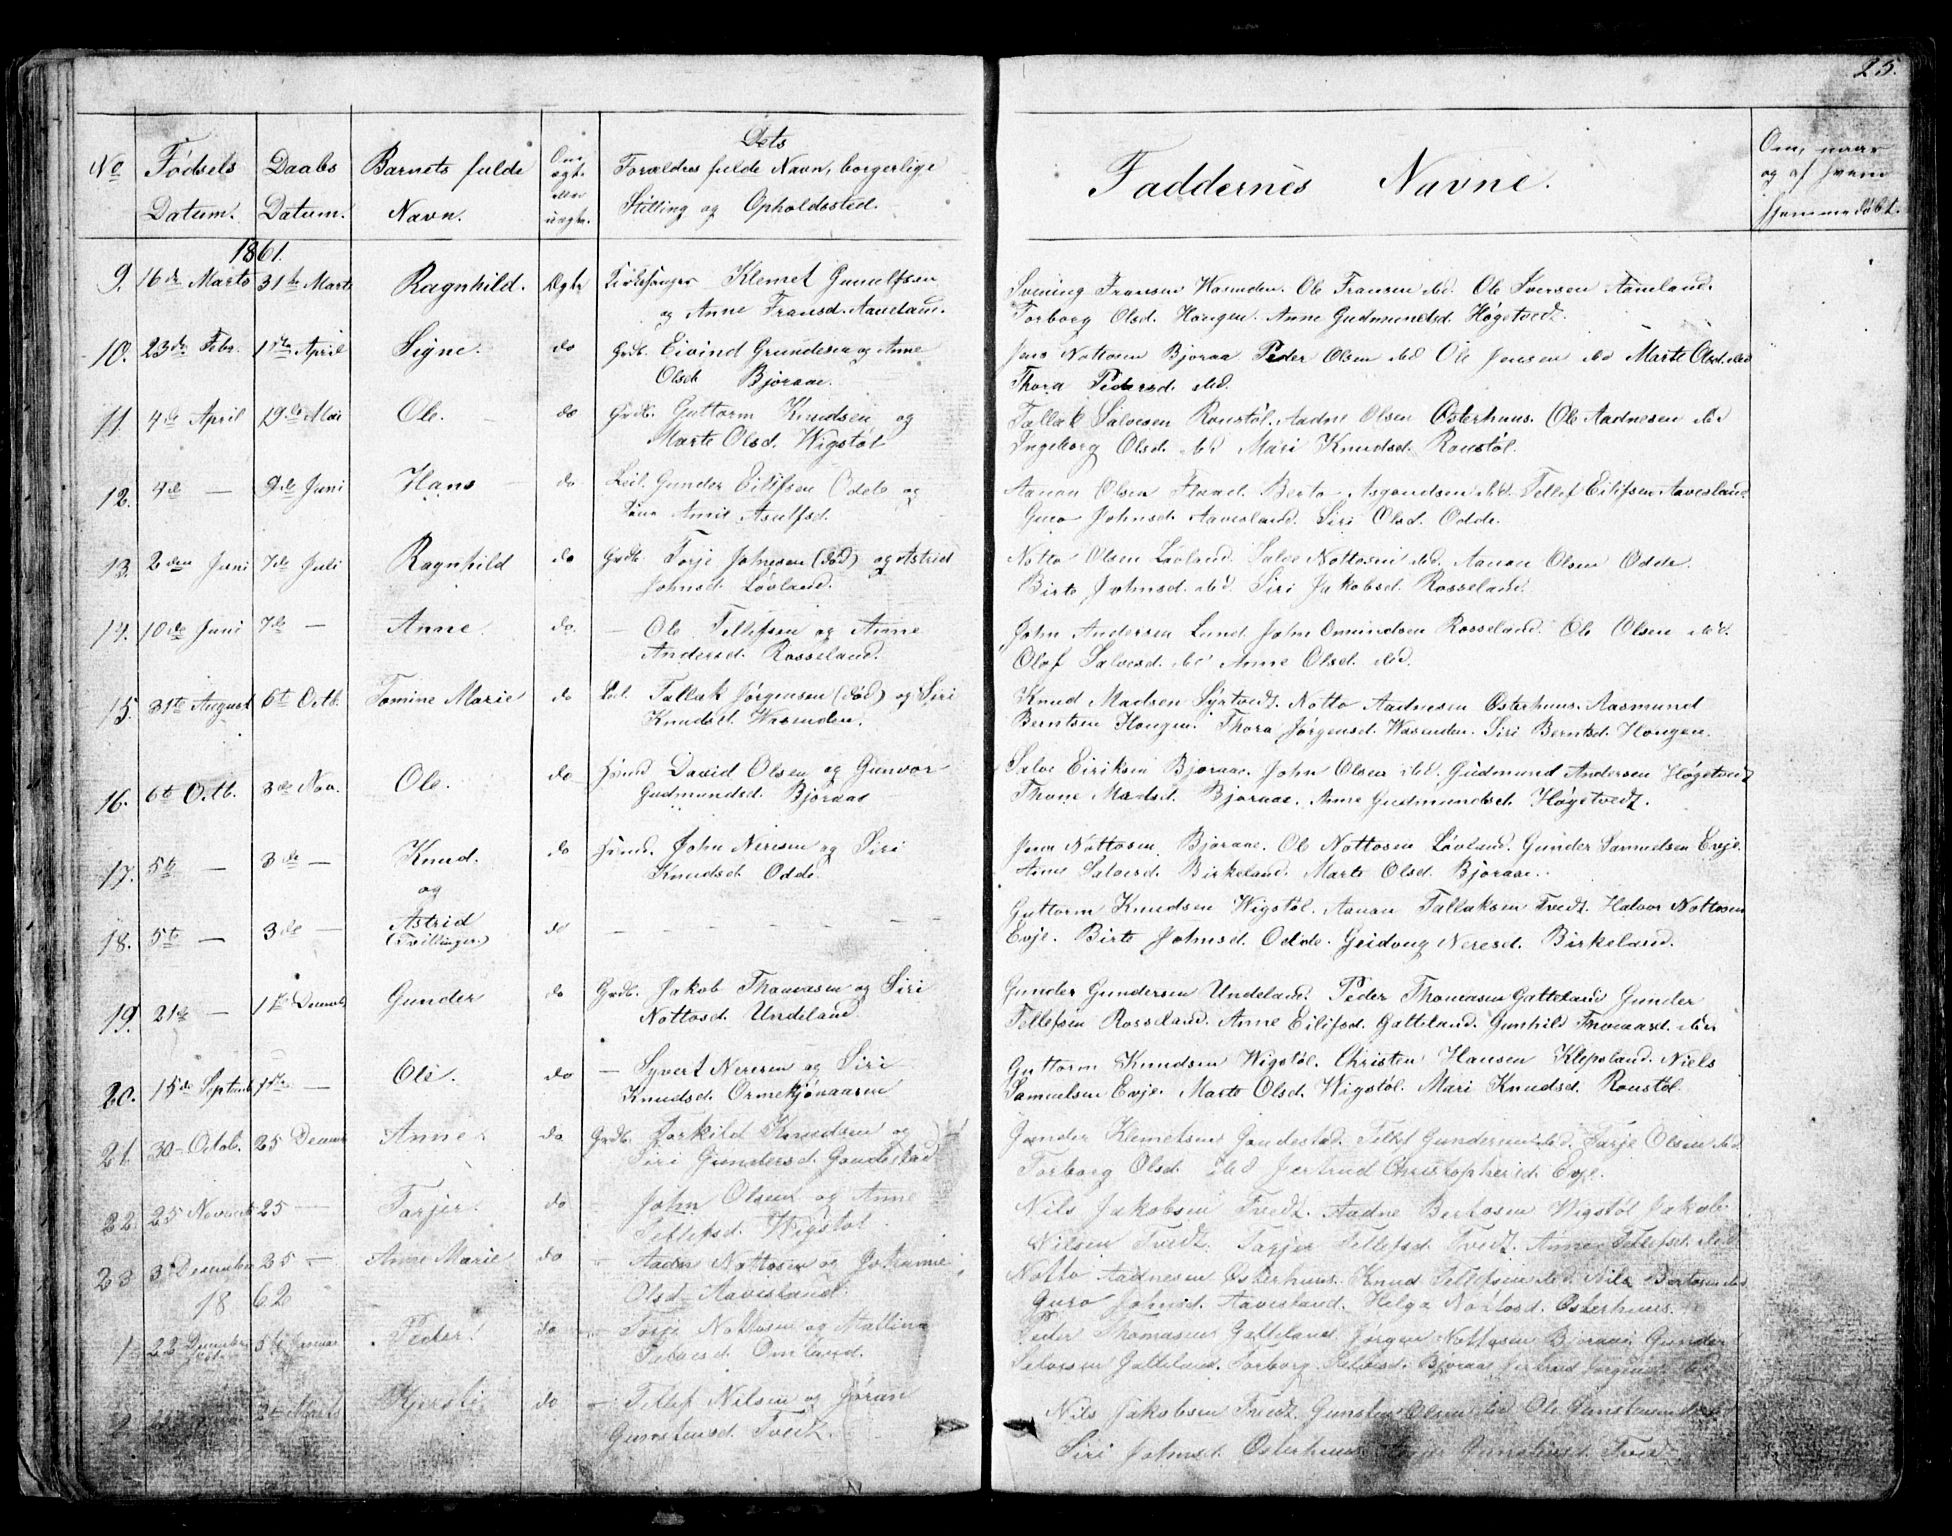 25.
No
Fødsels
Datum.
Daabs
Datum.
Barnets fulde
Navn.
Om
ægt.
eller
uægt.
Dets
Forældres fulde Navn, borgerlige
Stilling og Opholdssted.
Faddernes Navne.
Om, naar
og af hvem
hjemmedøbt.
1861.
9. 16de Marts 31te Marts Ragnhild. Ægte Kirkesanger Klemet Gunulfsen
og Anne Fransd. Aavesland.
Svening Fransen Wasenden. Ole Fransen ibd. Ole Iversen Aamland.
Torborg Olsd. Hougen. Anne Gudmundsd. Høgetvedt.
10. 23de Febr. 1ste April Signe. do Grdb. Eivind Grundesen og Anne
Olsd. Bjoraae.
Jens Nottosen Bjoraa Peder Olsen ibd Ole Jensen ibd Marte Olsd. ibd
Thora Pedersd. ibd.
11. 4de April 19de Mai Ole. do Grdb. Guttorm Knudsen og
Marte Olsd. Wigstøl
Tallak Salvesen Roustøl. Aadne Olsen Osterhuus. Ole Aadnesen ibd
Ingeborg Olsd. ibd Mari Knudsd. Roustøl.
12. 4de — 9de Juni Hans do Leil. Gunder Eilifsen Odde og
Anne Asulfsd.
Aanon Olsen Flaad. Berto Asgoudsen ibd. Tellef Eilifsen Aavesland
Guro Johnsd. Aavesland. Siri Olsd. Odde.
13. 2den Juni 7de Juli Ragnhild do Grdb. Torje Johnsen (død) og Astrid
Johnsd. Løvland.
Notto Olsen Løvland. Salve Nottosen ibd. Aanon Olsen Odde.
Birte Johnsd. ibd. Siri Jakobsd. Rosseland.
14. 10de Juni 7de — Anne. do. — Ole Tellefsen og Anne
Andersd. Rosseland.
John Andersen Lund. John Omundsen Rosseland. Ole Olsen ibd.
Olaf Salvesd. ibd Anne Olsd. ibd.
15. 31te August 6te Octb. Tomine Marie do Leil. Tallak Jørgensen (død) og Siri
Knudsd. Wasenden.
Knud Madsen Syrtvedt. Notto Aadnesen Osterhuus. Aasmund
Berntsen Hougen. Thora Jørgensd. Wasenden. Siri Berntsd. Hougen.
16. 6te Octb. 3de Nov. Ole. do Huusmd David Olsen og Gunvor
Gudmundsd. Bjoraae
Salve Eiriksen Bjoraae. John Olsen ibd. Gudmund Andersen Høgetvedt
Thone Madsd. Bjoraae. Anne Gudmundsd. Høgetvedt.
17. 5te — 3de — Knud. do Huusmd. John Neresen og Siri
Knudsd. Odde.
Jens Nottosen Bjoraae. Ole Nottosen Løvland. Gunder Samuelsen Evje.
Anne Salvesd. Birkeland. Marte Olsd. Bjoraae.
og
18. 5te — 3de — Astrid do
(Tvillinger)
Guttorm Knudsen Wigstøl. Aanon Tallaksen Tvedt. Halvor Nottosen
Evje. Birte Johnsd. Odde. Geidoug Neresd. Birkeland.
19. 21de — 1ste Decemb Gunder do Grdb. Jakob Thomassen og Siri
Nottosd. Undeland
Gunder Gundersen Undeland. Peder Thomasen Gatteland Gunder
Tellefsen Rosseland. Anne Eilifsd. Gatteland. Gunhild Thomasd. ibd.
20. 15de Septemb 1ste — Ole. do — Syvert Neresen og Siri
Knudsd. Ormekjønaasen
Guttorm Knudsen Wigstøl. Christen Hansen Klepsland. Niels
Samuelsen Evje. Marte Olsd. Wigstøl. Mari Knudsd. Roustøl.
21. 30 Octob. 25 Decemb Anne. do Grdb. Torkild Knudsen og
Siri Gundersd. Goudestad
Gunder Klemetsen Goudestad. Tellef Gundersen ibd. Tarje Olsen ibd
Torborg Olsd. ibd Jertrud Christophersd. Evje.
22. 25 Novemb 25 — Tarjer. do — John Olsen og Anne
Tellefsd. Wigstøl.
Nils Jakobsen Tvedt. Aadne Bertosen Wigstøl Jakob
Nilsen Tvedt. Tarjer Tellefsd. Tvedt. Anne Tellefsd. ibd
23 3 December 25 — Anne Marie do — Aadne Nottosen og Johanne
Olsd. Aavesland.
Notto Aadnesen Osterhuus. Knud Tellefsen ibd. Nils Bertosen ibd
Guro Johnsd. Aavesland. Helga Nottosd. Osterhuus.
1862
1 22 December 5te Januar Peder. do — Torje Nottosen og Mallina
Omland.
Peder Thomasen Gatteland. Jørgen Nottosen Bjoraae. Gunder
Salvesen Gatteland. Torborg Bjoraae Jertrud Jørgensd. ibd
2 Marts Kjersti do — Tellef Nilsen og Jøran
Gunstensd. Tvedt.
Nils Jakobsen Tvedt. Gunsten Olsen ibd Ole Gunstensen ibd
Siri Johnsd. Osterhuus. Gunstensd. Tvedt